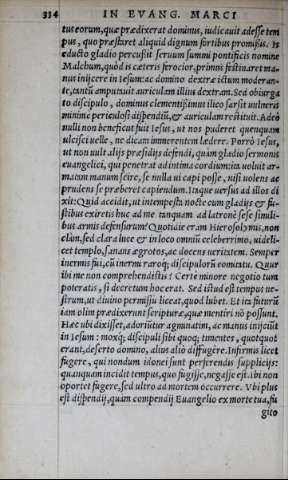 334 IN EVANG. MARCI
tus eorum, quæ prædixerat dominus, iudicauit adesse tem
pus, quo præstaret aliquid dignum fortibus promißis. Is
educto gladio percußit seruum summi pontificis nomine
Malchum, quòd is cæteris ferocior, primus festinaret ma-
nus inijcere in Iesum: ac domino dextræ ictum moderan-
te, tantũ amputauit auriculam illius dextram. Sed obiurga
to discipulo, dominus clementißimus ilico sarsit uulneris
minime periculosi dispendiũ, & auriculam restituit. Adeò
nulli non beneficus fuit Iesus, ut nos puderet quenquam
ulcisci uelle, ne dicam immerentem lædere. Porrò Iesus,
ut non uult alijs præsidijs defendi, quàm gladio sermonis
euangelici, qui penetrat ad intima cordium: ita uoluit ar-
matam manum scire, se nulla ui capi posse, nisi uolens ac
prudens se præberet capiendum. Itaque uersus ad illos di
xit: Quid accidit, ut intempesta nocte cum gladijs & fu-
stibus exiretis huc ad me tanquam ad latronẽ sese simili-
bus armis defensurum? Quotidie eram Hierosolymis, non
clàm, sed clara luce & in loco omniũ celeberrimo, uideli-
cet templo, sanans ægrotos, ac docens ueritatem. Semper
inermis fui, cũ inermi raroq; discipulorũ comitatu. Quur
ibi me non comprehendistis? Certè minore negotio tum
poteratis, si decretum hoc erat. Sed istud est tempus ue-
strum, ut diuino permissu liceat, quod lubet. Et ita futurũ
iam olim prædixerunt scripturæ, quæ mentiri nõ possunt.
Hæc ubi dixisset, adoriũtur agminatim, ac manus inijciũt
in Iesum: moxq; discipuli sibi quoq; timentes, quotquot
erant, deserto domino, alius aliò diffugêre. Infirmis licet
fugere, qui nondum idonei sunt perferendis supplicijs:
quanquam incidit tempus, quo fugisse, negasse est. Ibi non
oportet fugere, sed ultro ad mortem occurrere. Vbi plus
est dispendij, quàm compendij Euangelio ex morte tua, fu
gito